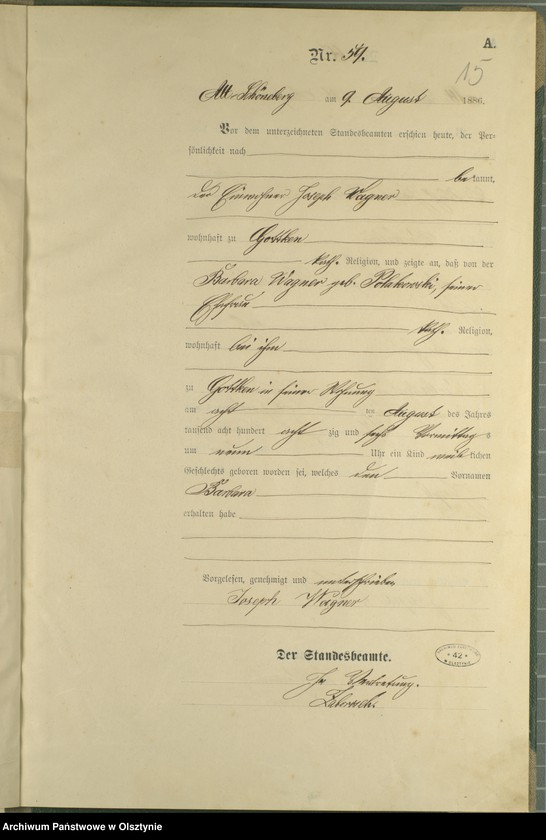 A.
Nr. 54.
15
Alt Schöneberg am 9. August 1886.
Vor dem unterzeichneten Standesbeamten erschien heute, der Per-
sönlichkeit nach
bekannt,
der Einwohner Joseph Wagner
wohnhaft zu Gottken
kath. Religion, und zeigte an, daß von der
Barbara Wagner geb. Polakowski, seiner
Ehefrau
kath. Religion,
wohnhaft bei ihm
zu Gottken in seiner Wohnung
am acht ten August des Jahres
tausend acht hundert acht zig und sechs Vormittags
um neun Uhr ein Kind weiblichen
Geschlechts geboren worden sei, welches den Vornamen
Barbara
erhalten habe
Vorgelesen, genehmigt und unterschrieben
Joseph Wagner
Der Standesbeamte.
42
OLSZTYNIE
In Vertretung.
Archiwum Państwowe w Olsztynie